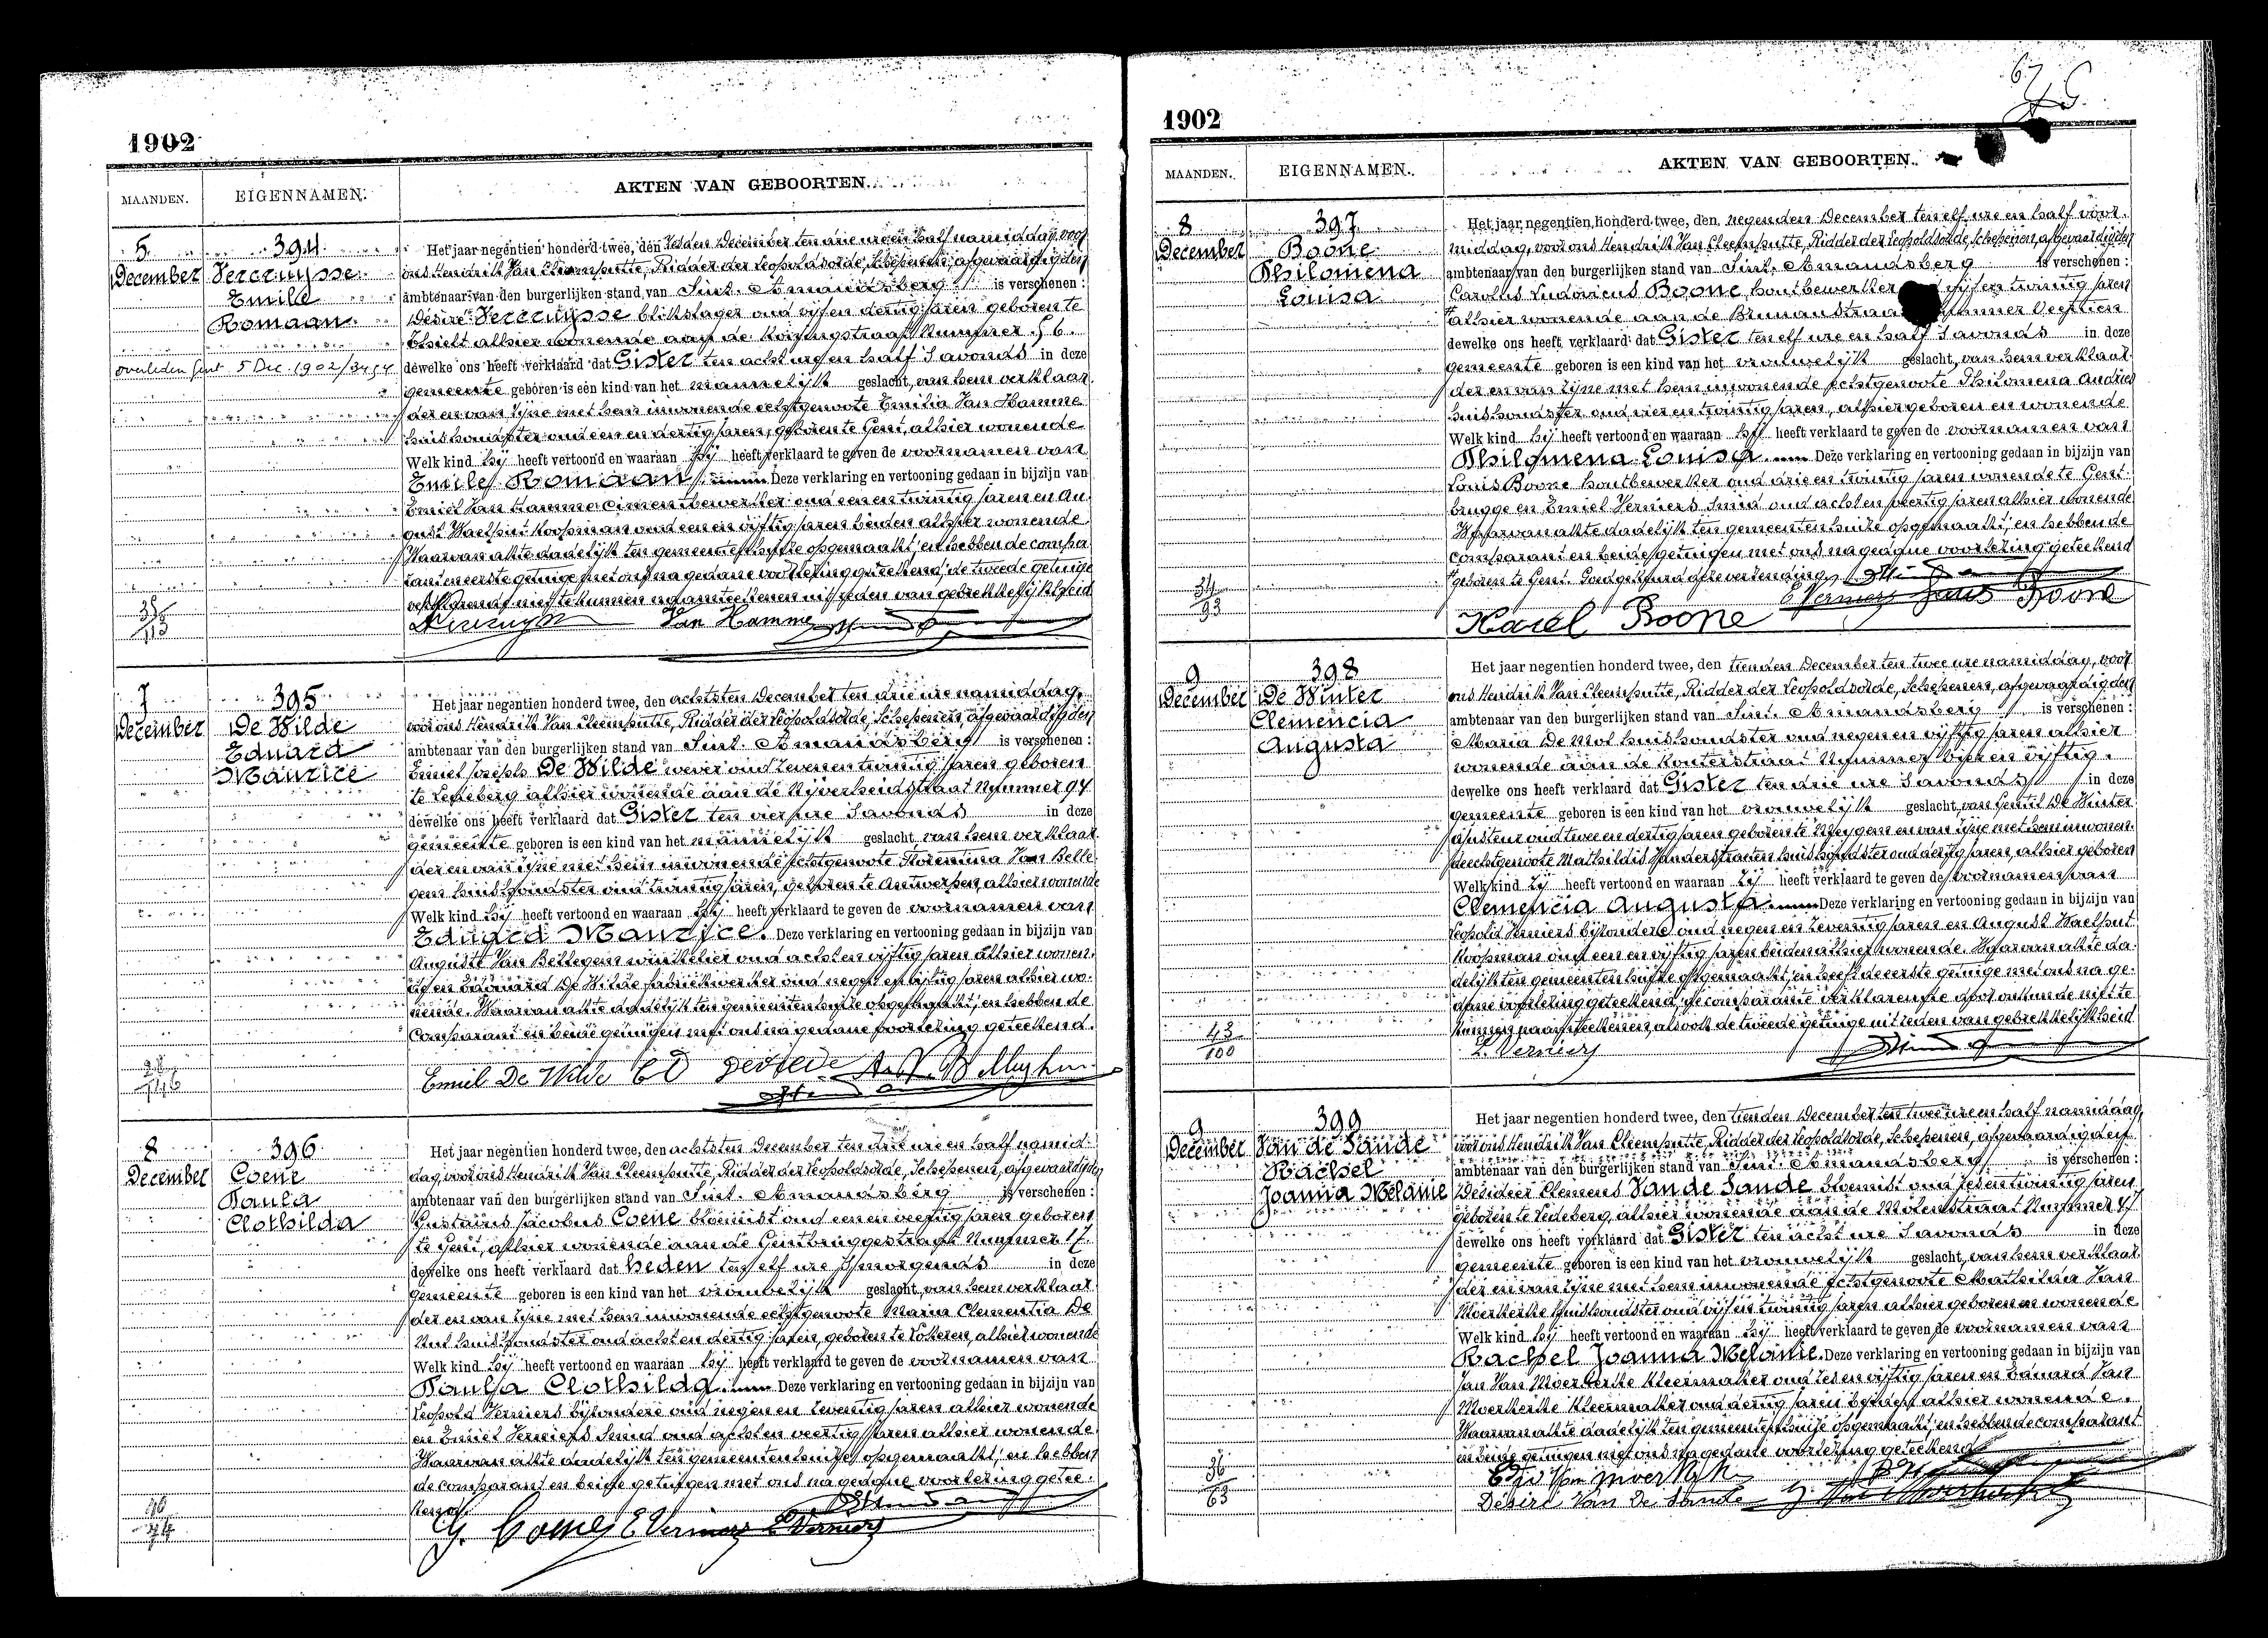 1902
MAANDEN. EIGENNAMEN. AKTEN VAN GEBOORTEN.
5 December
394
Vercruysse
Emile
Romaan
overleden Gent 5 Dec. 1902/3454
Het jaar negentien honderd twee, den zesden December ten drie ure en half namiddag, voor
ons Hendrik Van Cleemputte, Ridder der Leopoldsorde, Schepenen, afgevaardigden
ambtenaar van den burgerlijken stand van Sint. Amandsberg is verschenen:
Désiré Vercruysse blikslager oud vijf en dertig jaren geboren te
alhier wonende aan de Koningstraat Nummer 56.
dewelke ons heeft verklaard dat Gister ten acht ure en half 's avonds in deze
gemeente geboren is een kind van het mannelijk geslacht, van hem verklaar-
der en van zijne met hem inwonende echtgenoote Emilia Van Hamme
huishoudster oud een en dertig jaren, geboren te Gent, alhier wonende
Welk kind hij heeft vertoond en waaraan hij heeft verklaard te geven de voornamen van
Emile Romaan. Deze verklaring en vertooning gedaan in bijzijn van
Emiel Van Hamme cimentbewerker oud een en twintig jaren en Au-
gust Waelput koopman oud een en vijftig jaren beiden alhier wonende.
Waarvan akte dadelijk ten gemeentenhuize opgemaakt, en hebben de compa-
rant en eerste getuige met ons na gedane voorlezing geteekend, de tweede getuige
verklarende niet te kunnen naamteekenen uit reden van gebrekkelijkheid
Van Hamme
7 December
395
De Wilde
Eduard
Maurice
Het jaar negentien honderd twee, den achtsten December ten drie ure namiddag,
voor ons Hendrik Van Cleemputte, Ridder der Leopoldsorde, Schepenen, afgevaardigden
ambtenaar van den burgerlijken stand van Sint. Amandsberg is verschenen:
Emiel Joseph De Wilde wever oud zeven en twintig jaren geboren
te Ledeberg alhier wonende aan de Nijverheidstraat Nummer 94
dewelke ons heeft verklaard dat Gister ten vier ure 's avonds in deze
gemeente geboren is een kind van het mannelijk geslacht van hem verklaar-
der en van zijne met hem inwonende echtgenoote Florentina Van Belle-
gem huishoudster oud twintig jaren, geboren te Antwerpen, alhier wonende
Welk kind hij heeft vertoond en waaraan hij heeft verklaard te geven de voornamen van
Eduard Maurice. Deze verklaring en vertooning gedaan in bijzijn van
Auguste Van Bellegem winkelier oud acht en vijftig jaren alhier wonen-
de en Eduuard De Wilde fabriekwerker oud negen en vijftig jaren alhier wo-
nende. Waarvan akte dadelijk ten gemeentenhuize opgemaakt, en hebben de
comparant en beide getuigen met ons na gedane voorlezing geteekend.
Emiel De Wilde
8 December
396
Coene
Paula
Clothilda
Het jaar negentien honderd twee, den achtsten December ten drie ure en half namid-
dag, voor ons Hendrik Van Cleemputte, Ridder der Leopoldsorde, Schepenen, afgevaardigden
ambtenaar van den burgerlijken stand van Sint. Amandsberg is verschenen:
Gustavus Jacobus Coene bloemist oud een en veertig jaren geboren
te Gent, alhier wonende aan de Gentbruggestraat Nummer 17.
dewelke ons heeft verklaard dat heden ten elf ure 's morgends in deze
gemeente geboren is een kind van het vrouwelijk geslacht, van hem verklaar-
der en van zijne met hem inwonende echtgenoote Maria Clementia De
huishoudster oud acht en dertig jaren, geboren te Lokeren, alhier wonende
Welk kind hij heeft vertoond en waaraan hij heeft verklaard te geven de voornamen van
Paula Clothilda. Deze verklaring en vertooning gedaan in bijzijn van
Leopold Verniers bijzondere oud negen en zeventig jaren alhier wonende
en Emiel Verniers Smid oud acht en veertig jaren alhier wonende.
Waarvan akte dadelijk ten gemeentenhuize opgemaakt, en hebben
de comparant en beide getuigen met ons na gedane voorlezing getee-
kend.
G. Coene E Verniers L. Verniers
1902
MAANDEN. EIGENNAMEN. AKTEN VAN GEBOORTEN.
8 December
397
Boone
Philomena
Louisa
34
93
Het jaar negentien honderd twee, den negenden December ten elf ure en half voor-
middag, voor ons Hendrik Van Cleemputte, Ridder der Leopoldsorde, Schepenen, afgevaardigden
ambtenaar van den burgerlijken stand van Sint. Amandsberg is verschenen:
Carolus Ludovicus Boone houtbewerker vijf en twintig jaren
alhier wonende aan de Nummer Veertien
dewelke ons heeft verklaard dat Gister ten elf ure en half 's avonds in deze
gemeente geboren is een kind van het vrouwelijk geslacht, van hem verklaar-
der en van zijne met hem inwonende echtgenoote Philomena Andries
huishoudster oud vier en twintig jaren, alhier geboren en wonende
Welk kind hij heeft vertoond en waaraan hij heeft verklaard te geven de voornamen van
Philomena Louisa. Deze verklaring en vertooning gedaan in bijzijn van
Louis Boone houtbewerker oud drie en twintig jaren wonende te Gent-
brugge en Emiel Verniers Smid oud acht en veertig jaren alhier wonende
Waarvan akte dadelijk ten gemeentenhuize opgemaakt, en hebben de
comparant en beide getuigen met ons na gedane voorlezing geteekend
geboren te Gent. Goedgekeurd deze verzending.
Karel Boone E Verniers Louis Boone
9 December
398
De Winter
Clemencia
Augusta
43
100
Het jaar negentien honderd twee, den tienden December ten twee ure namiddag, voor
ons Hendrik Van Cleemputte, Ridder der Leopoldsorde, Schepenen, afgevaardigden
ambtenaar van den burgerlijken stand van Sint. Amandsberg is verschenen:
Maria De Mol huishoudster oud negen en vijftig jaren alhier
wonende aan de Nummer vijf en vijftig.
dewelke ons heeft verklaard dat Gister ten drie ure 's avonds in deze
gemeente geboren is een kind van het vrouwelijk geslacht, van Gentil De Winter
ajusteur oud twee en dertig jaren geboren te Meygem en van zijne met hem inwonen-
de echtgenoote Mathildis Vanderstraeten huishoudster oud dertig jaren, alhier geboren
Welk kind zij heeft vertoond en waaraan zij heeft verklaard te geven de voornamen van
Clemencia Augusta. Deze verklaring en vertooning gedaan in bijzijn van
Leopold Verniers bijzondere oud negen en zeventig jaren en August Waelput
koopman oud een en vijftig jaren beiden alhier wonende. Waarvan akte da-
delijk ten gemeentenhuize opgemaakt, en heeft de eerste getuige met ons na ge-
dane voorlezing geteekend, de comparante verklarende door onkunde niet te
kunnen naamteekenen, alsook de tweede getuige uit reden van gebrekkelijkheid
L. Verniers
9 December
399
Van de Sande
Rachel
Joanna Mélanie
36
63
Het jaar negentien honderd twee, den tienden December ten twee ure en half namiddag,
voor ons Hendrik Van Cleemputte, Ridder der Leopoldsorde, Schepenen, afgevaardigden
ambtenaar van den burgerlijken stand van Sint. Amandsberg is verschenen:
Desideer Clemens Van de Sande bloemist oud zes en twintig jaren
geboren te Ledeberg, alhier wonende aan de Molenstraat Nummer 47
dewelke ons heeft verklaard dat Gister ten acht ure 's avonds in deze
gemeente geboren is een kind van het vrouwelijk geslacht, van hem verklaar-
der en van zijne met hem inwonende echtgenoote Mathilda Van
Moerkerke huishoudster oud vijf en twintig jaren alhier geboren en wonende
Welk kind hij heeft vertoond en waaraan hij heeft verklaard te geven de voornamen van
Rachel Joanna Mélanie. Deze verklaring en vertooning gedaan in bijzijn van
Jan Van Moerkerke kleermaker oud zes en vijftig jaren en Eduard Van
Moerkerke kleermaker oud dertig jaren beiden alhier wonende.
Waarvan akte dadelijk ten gemeentenhuize opgemaakt, en hebben de comparant
en beide getuigen met ons na gedane voorlezing geteekend
Désiré Van De Sande